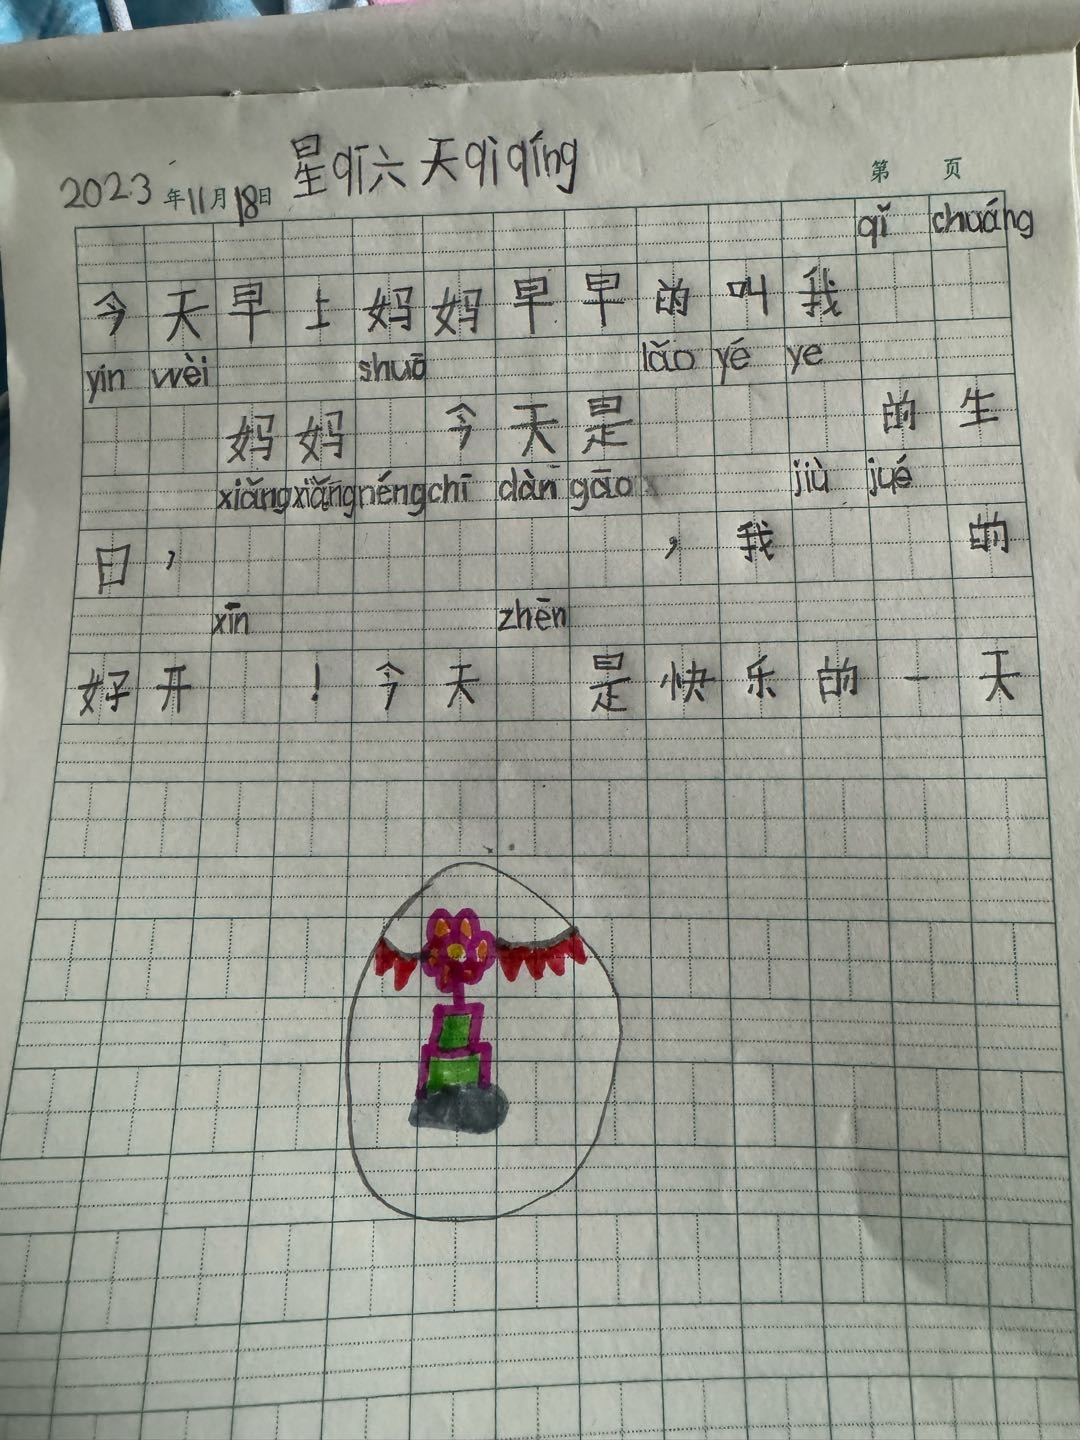 2023年11月18日 星qī六 天qì qíng 第 页
qǐ chuáng
今天早上妈妈早早的叫我
yīn wèi shuō lǎo yé ye
妈妈 今天是 的生
xiǎng xiǎng néng chī dàn gāo jiù jué
日， ，我 的
xīn zhēn
好开 ！今天 是快乐的一天